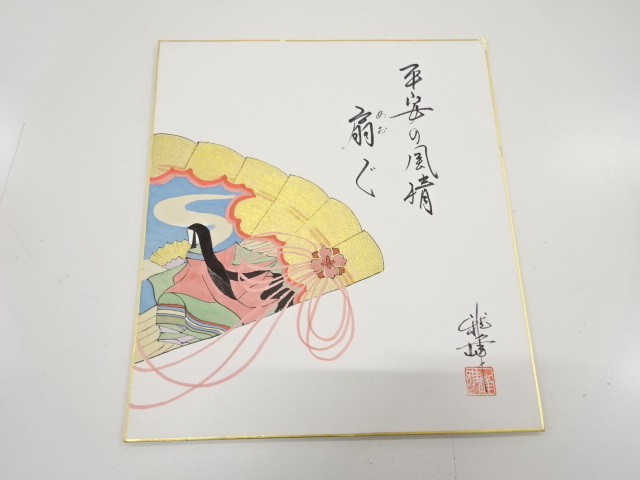 平安の風情
扇ぐ
あお